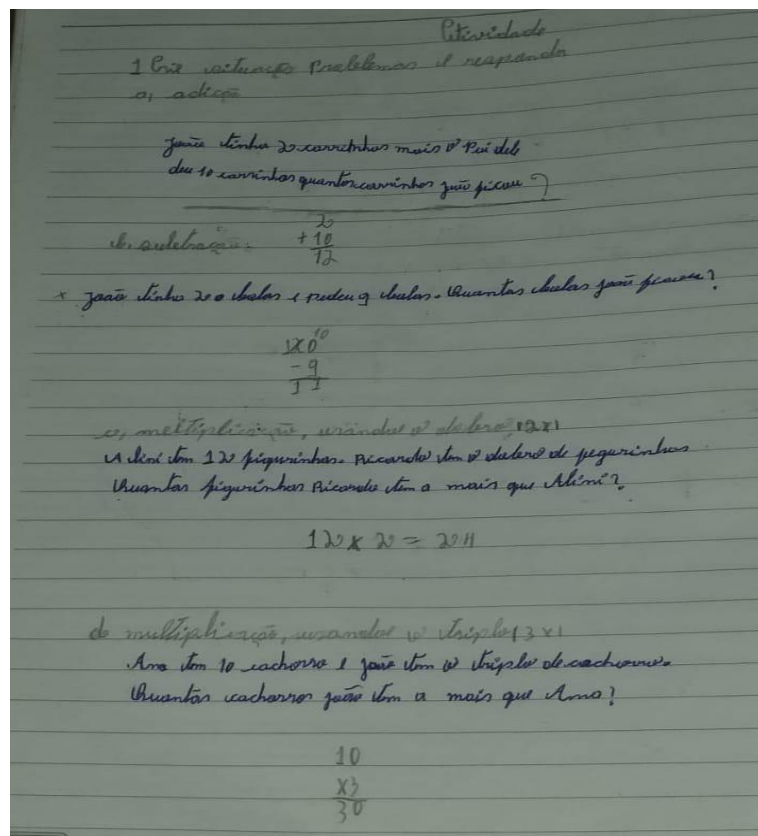 Atividade
1 Crie situação Problemas e responda
a, adição
João tinha 2 carrinhos mais o Pai dele
deu 10 carrinhos quantos carrinhos João ficou?
2
b, subtração. + 10
12
x João tinha 20 balas e perdeu 9 balas. Quantas balas João ficou?
10
- 9
11
c, multiplicação, usando o dobro, (2x)
Alini tem 12 figurinhas. Ricardo tem o dobro de figurinhas
Quantas figurinhas Ricardo tem a mais que Alini?
12 x 2 = 24
d, multiplicação, usando o triplo (3x)
Ana tem 10 cachorro e João tem o triplo de cachorro.
Quantas cachorros João tem a mais que Ana?
10
x3
30